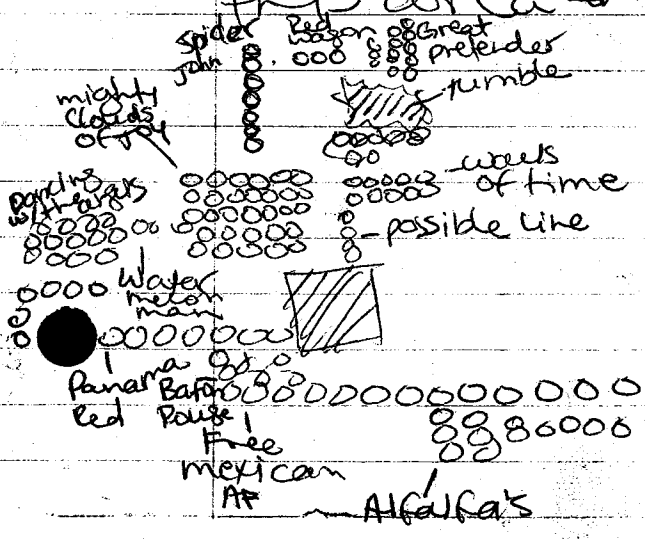 Spider
John
Red
wagon
Great
pretender
rumble
mighty
clouds
of joy
walls
of time
Dancing
w/the angels
possible line
Water
melon
man
Panama
Red
Baton
Rouge
Free
mexican
AF
Alfalfa's